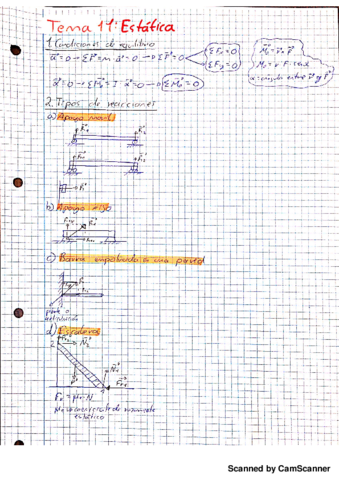 Tema 11: Estática
1. Condiciones de equilibrio
a⃗=0 → ΣF⃗=m·a⃗=0 → ΣF⃗=0
ΣFx=0
ΣFy=0
M⃗o=r⃗·F⃗
Mo=r·F·senα
α=ángulo entre r⃗ y F⃗
α⃗=0 → ΣM⃗o=I·α⃗=0 → ΣM⃗o=0
2. Tipos de reacciones
a) Apoyo móvil
b) Apoyo fijo
c) Barra empotrada a una pared
d) Escaleras
Fr=μe·N
μe=coeficiente de rozamiento
estático
Scanned by CamScanner